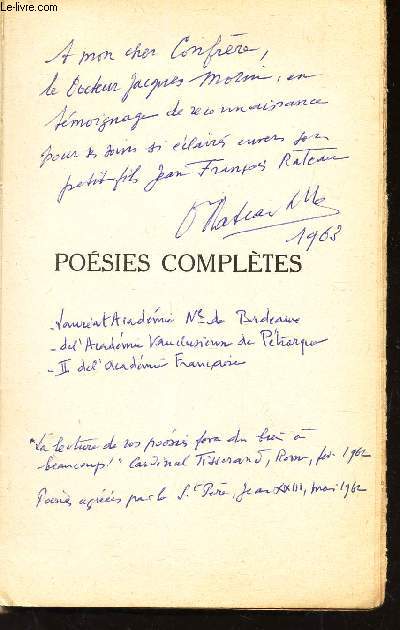 A mon cher Confrère,
le Docteur Jacques Morin, en
témoignage de reconnaissance
pour ses soins si éclairés envers son
petit-fils Jean François Rateau
Rateau
1963
POÉSIES COMPLÈTES
- Lauréat Académie Nle de Bordeaux
- de l'Académie Vauclusienne de Pétrarque
- II de l'Académie Française
"La lecture de vos poésies fera du bien à
beaucoup!" Cardinal Tisserand, Rome, fév 1962
Poésies agréées par le St Père, Jean XXIII, mai 1962